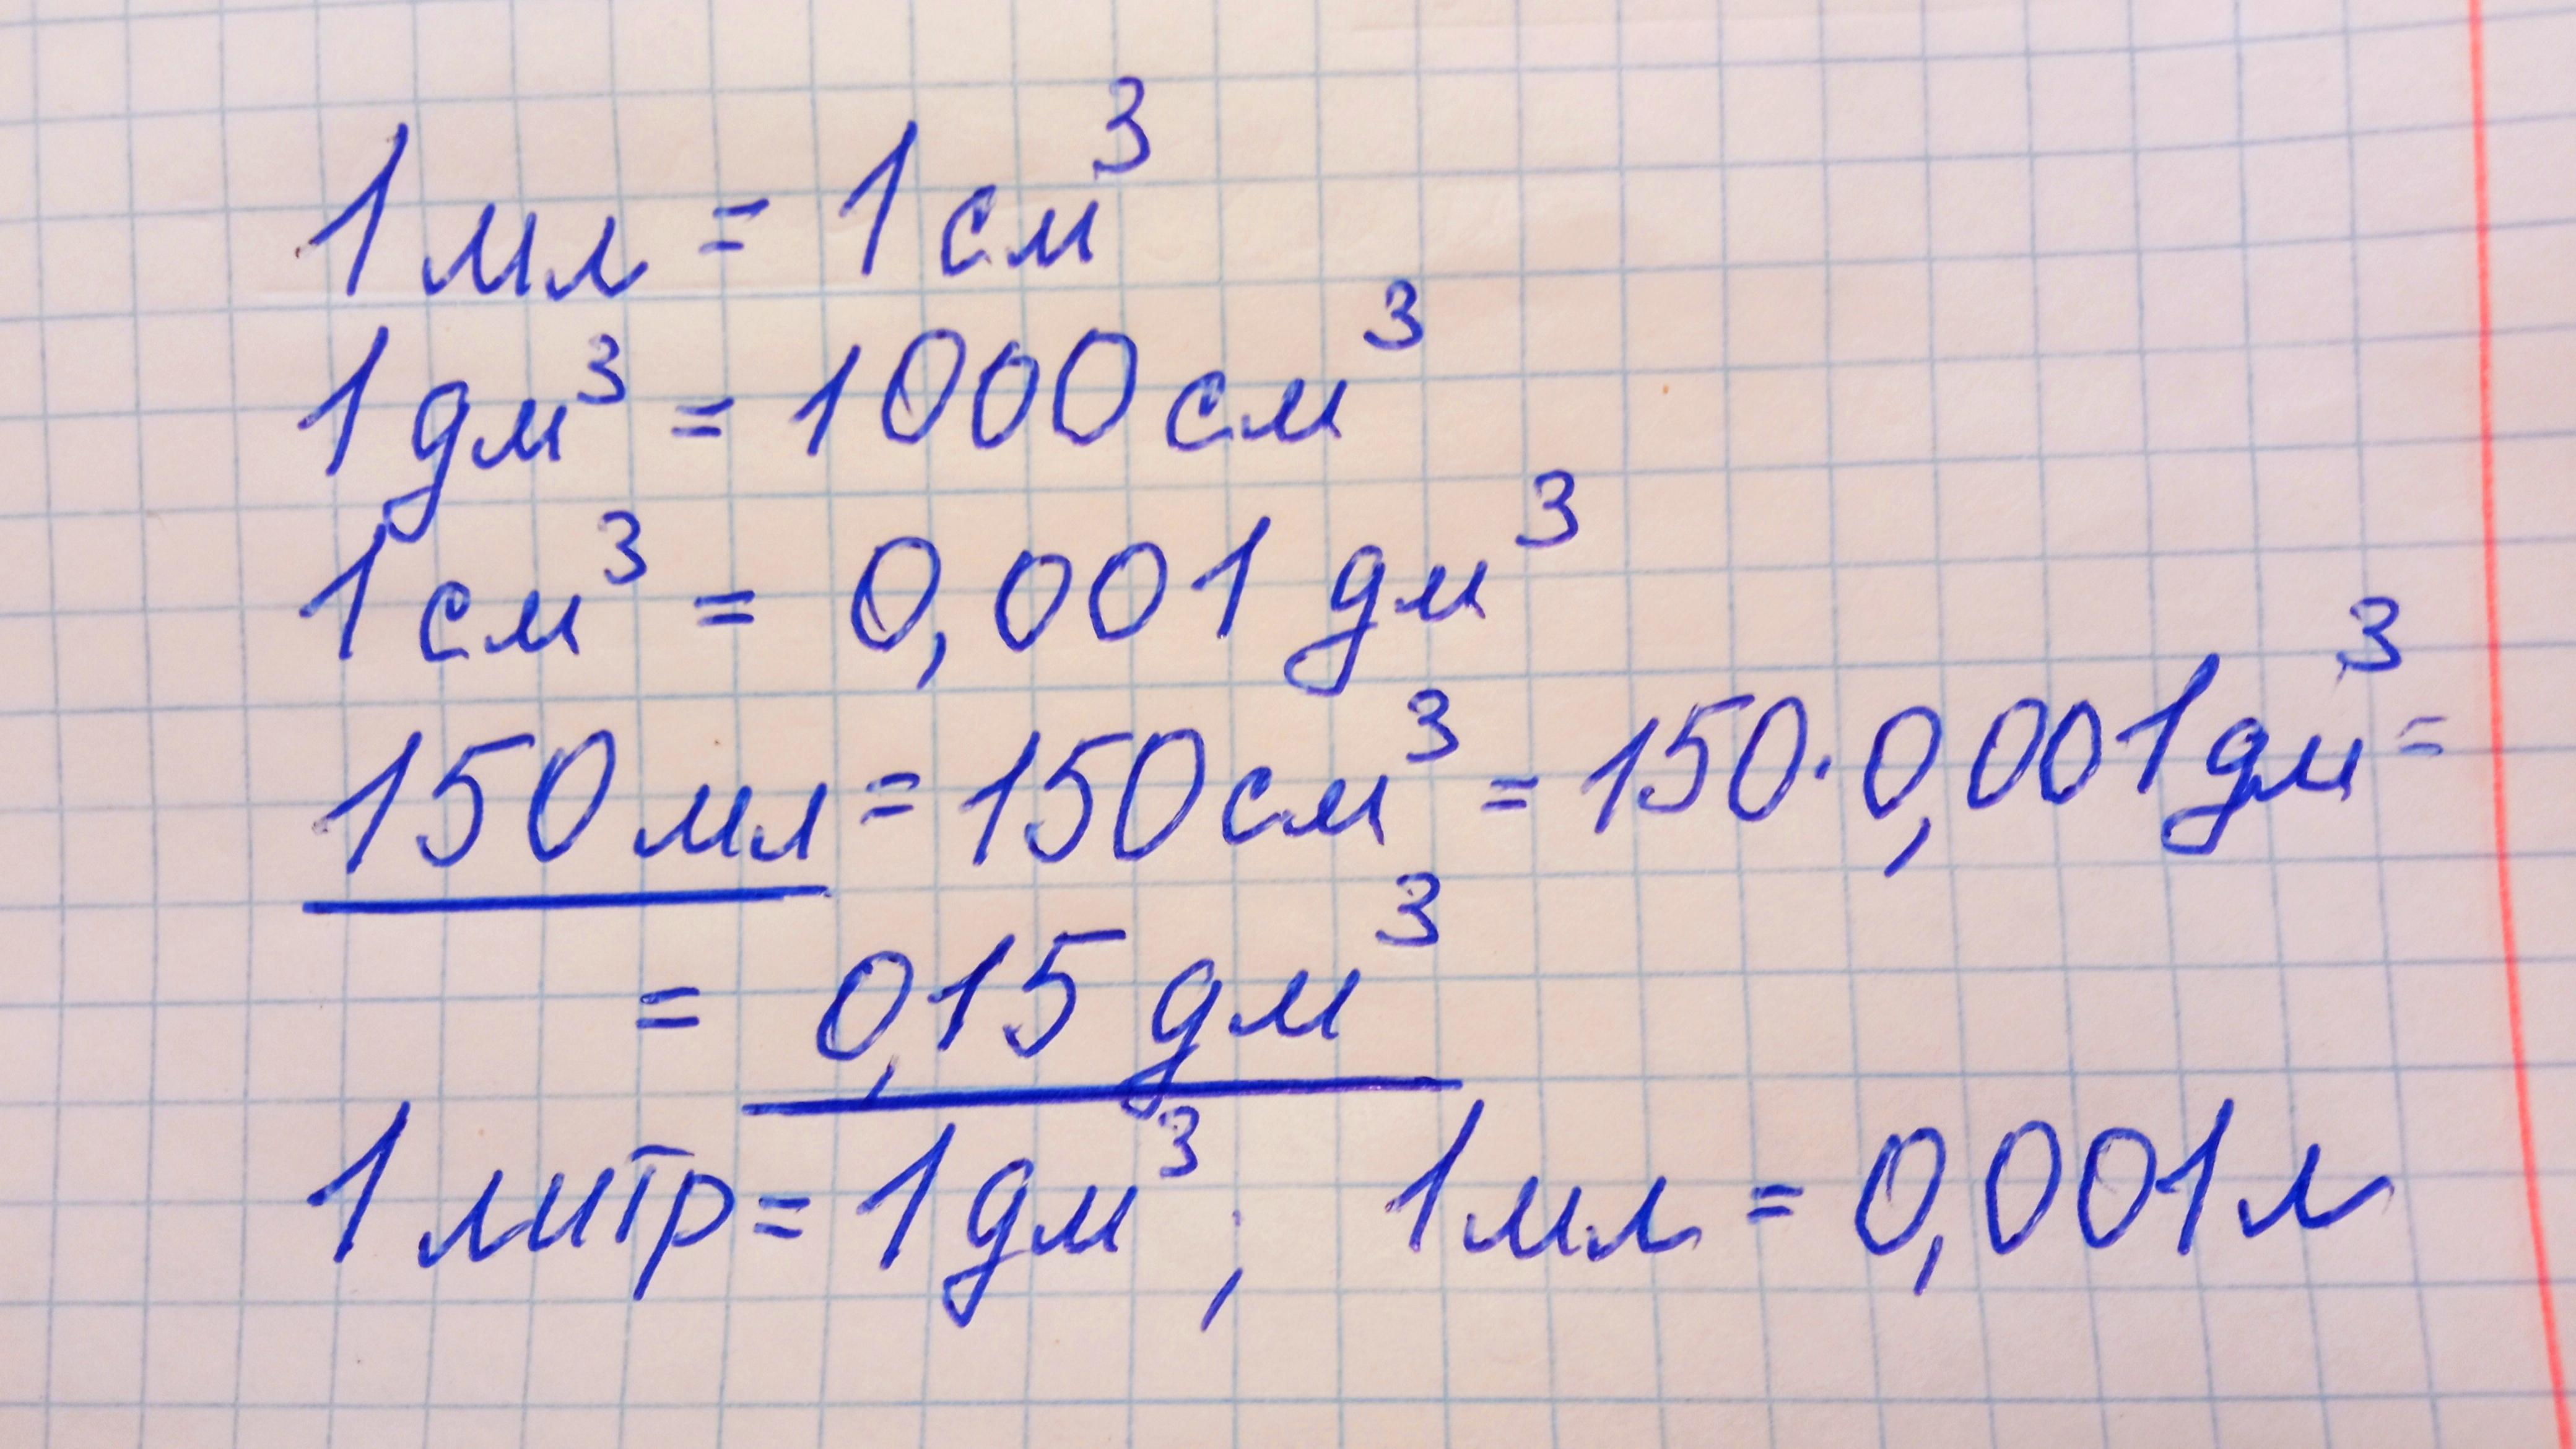 1 мл = 1 см³
1 дм³ = 1000 см³
1 см³ = 0,001 дм³
150 мл = 150 см³ = 150·0,001 дм³ =
= 0,15 дм³
1 литр = 1 дм³; 1 мл = 0,001 л